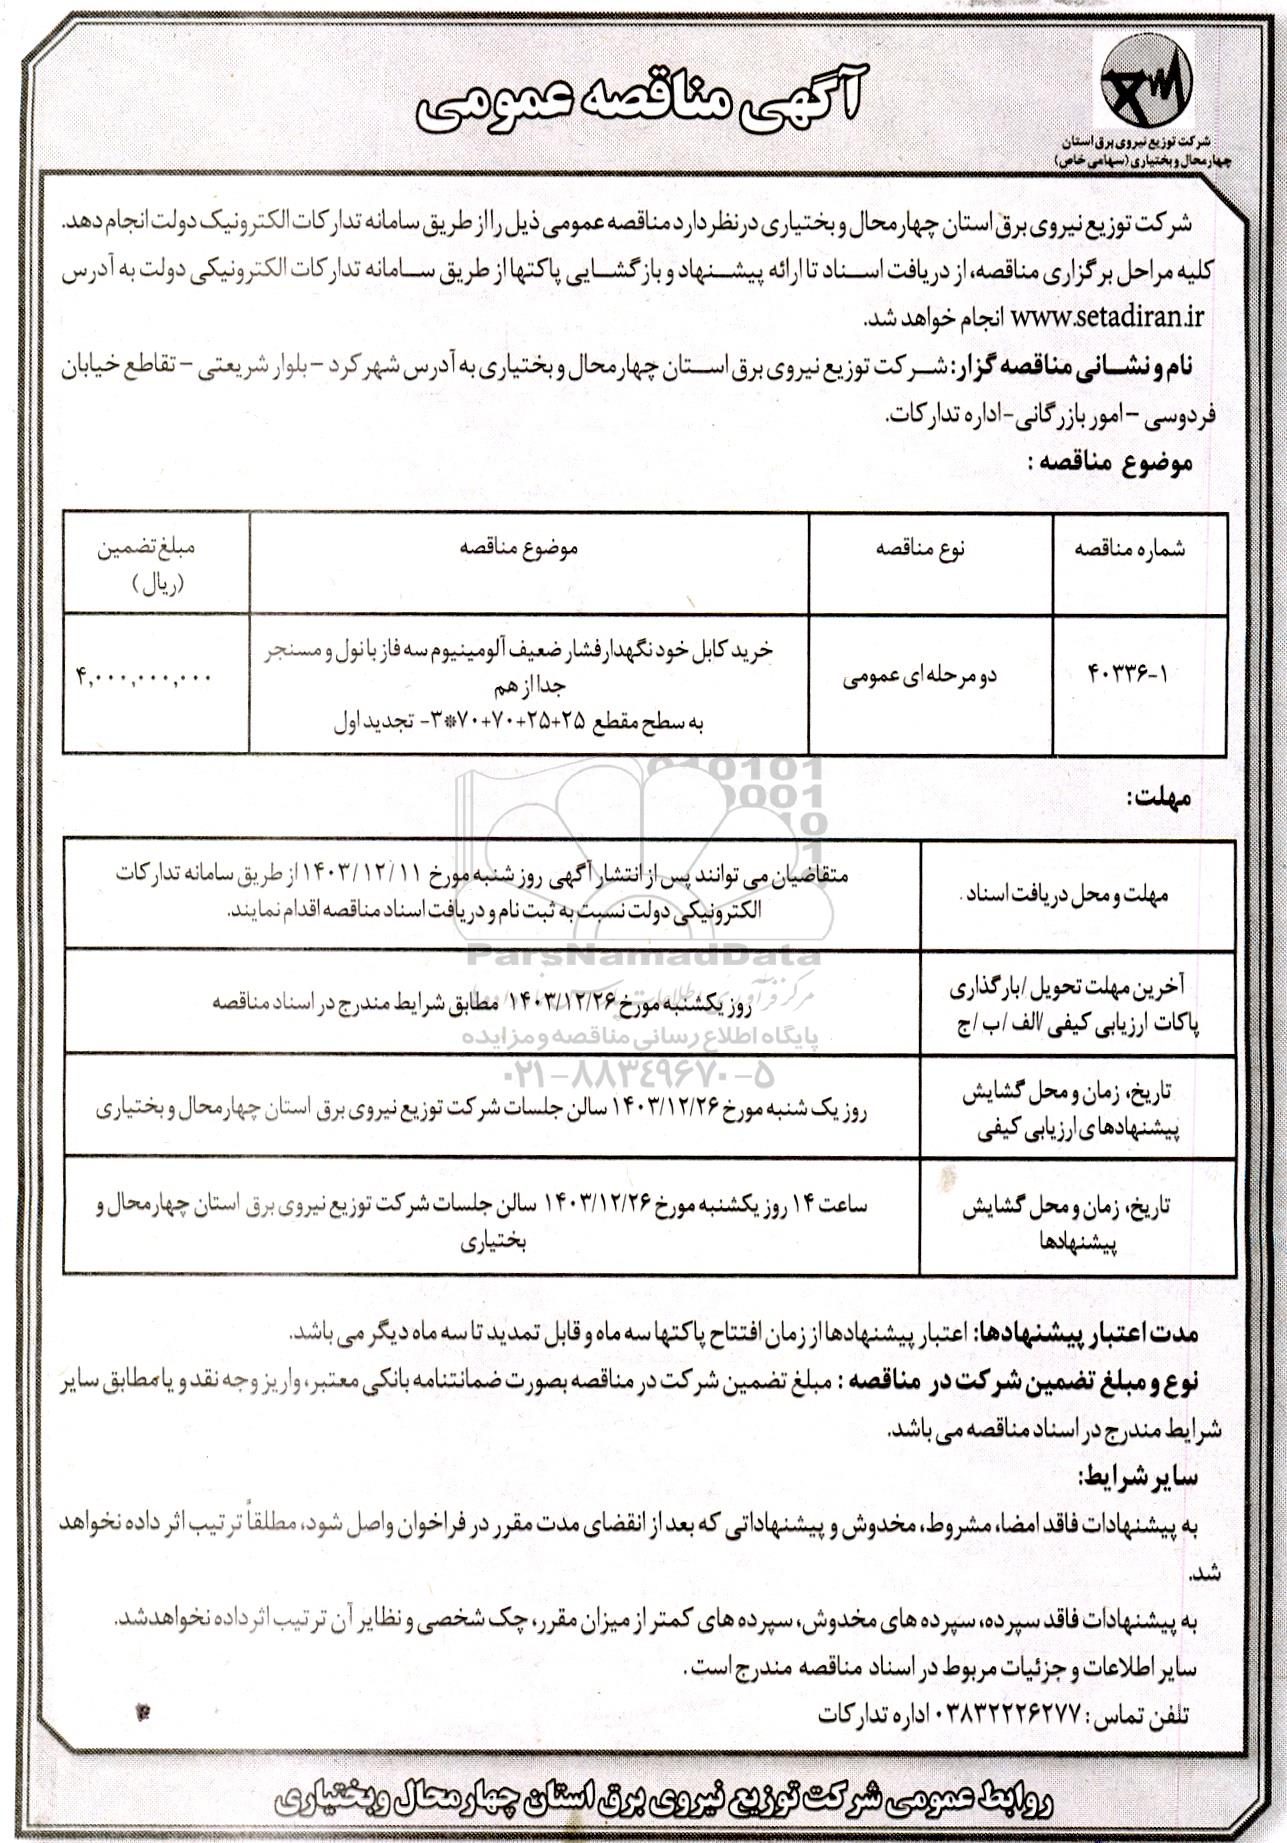 آگهی مناقصه عمومی
شرکت توزیع نیروی برق استان
چهارمحال و بختیاری (سهامی خاص)
شرکت توزیع نیروی برق استان چهارمحال و بختیاری درنظر دارد مناقصه عمومی ذیل را از طریق سامانه تدارکات الکترونیک دولت انجام دهد.
کلیه مراحل برگزاری مناقصه، از دریافت اسناد تا ارائه پیشنهاد و بازگشایی پاکتها از طریق سامانه تدارکات الکترونیکی دولت به آدرس
www.setadiran.ir انجام خواهد شد.
نام و نشانی مناقصه گزار: شرکت توزیع نیروی برق استان چهارمحال و بختیاری به آدرس شهرکرد – بلوار شریعتی – تقاطع خیابان
فردوسی – امور بازرگانی- اداره تدارکات.
موضوع مناقصه :
شماره مناقصه
نوع مناقصه
موضوع مناقصه
مبلغ تضمین
(ریال)
۴۰۳۳۶-۱
دو مرحله ای عمومی
خرید کابل خودنگهدار فشار ضعیف آلومینیوم سه فاز با نول و مسنجر
جدا از هم
به سطح مقطع ۲۵+۲۵+۷۰+۷۰*۳- تجدید اول
۴,۰۰۰,۰۰۰,۰۰۰
مهلت:
مهلت و محل دریافت اسناد .
متقاضیان می توانند پس از انتشار آگهی روز شنبه مورخ ۱۴۰۳/۱۲/۱۱ از طریق سامانه تدارکات
الکترونیکی دولت نسبت به ثبت نام و دریافت اسناد مناقصه اقدام نمایند.
آخرین مهلت تحویل /بارگذاری
پاکات ارزیابی کیفی /الف /ب /ج
روز یکشنبه مورخ ۱۴۰۳/۱۲/۲۶ مطابق شرایط مندرج در اسناد مناقصه
تاریخ، زمان و محل گشایش
پیشنهادهای ارزیابی کیفی
روز یک شنبه مورخ ۱۴۰۳/۱۲/۲۶ سالن جلسات شرکت توزیع نیروی برق استان چهارمحال و بختیاری
تاریخ، زمان و محل گشایش
پیشنهادها
ساعت ۱۴ روز یکشنبه مورخ ۱۴۰۳/۱۲/۲۶ سالن جلسات شرکت توزیع نیروی برق استان چهارمحال و
بختیاری
ParsNamadData
پایگاه اطلاع رسانی مناقصه و مزایده
۰۲۱-۸۸۳۴۹۶۷۰-۵
مدت اعتبار پیشنهادها: اعتبار پیشنهادها از زمان افتتاح پاکتها سه ماه و قابل تمدید تا سه ماه دیگر می باشد.
نوع و مبلغ تضمین شرکت در مناقصه : مبلغ تضمین شرکت در مناقصه بصورت ضمانتنامه بانکی معتبر، واریز وجه نقد و یا مطابق سایر
شرایط مندرج در اسناد مناقصه می باشد.
سایر شرایط:
به پیشنهادات فاقد امضا، مشروط، مخدوش و پیشنهاداتی که بعد از انقضای مدت مقرر در فراخوان واصل شود، مطلقاً ترتیب اثر داده نخواهد
شد.
به پیشنهادات فاقد سپرده، سپرده های مخدوش، سپرده های کمتر از میزان مقرر، چک شخصی و نظایر آن ترتیب اثر داده نخواهد شد.
سایر اطلاعات و جزئیات مربوط در اسناد مناقصه مندرج است .
تلفن تماس : ۰۳۸۳۲۲۲۶۲۷۷ اداره تدارکات
روابط عمومی شرکت توزیع نیروی برق استان چهارمحال وبختیاری